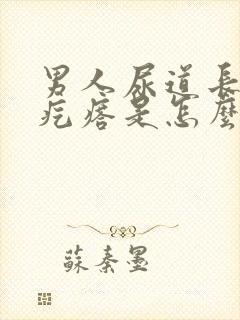 男人尿道長
疙瘩是怎麼
蘇秦墨